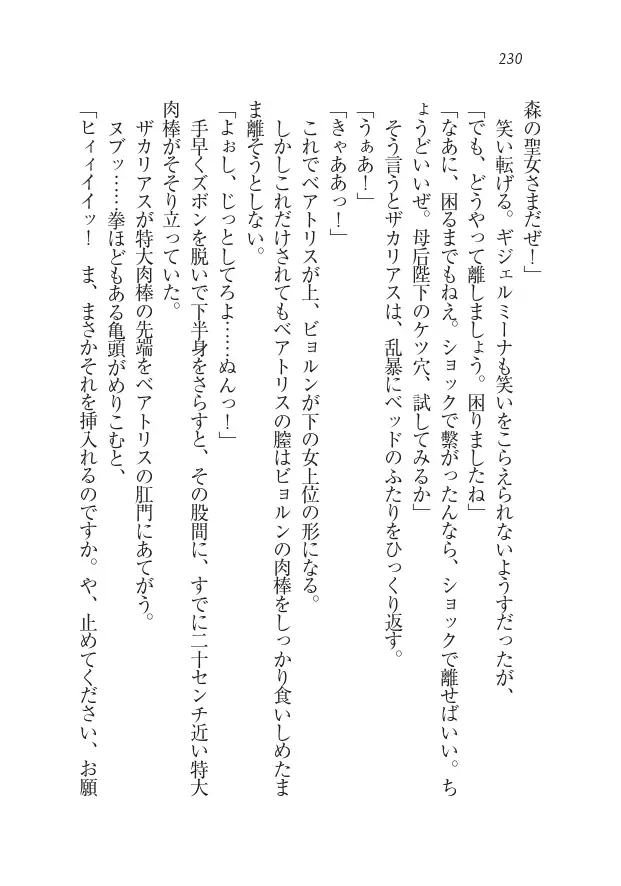 230
森の聖女さまだぜ！」
　笑い転げる。ギジェルミーナも笑いをこらえられないようすだったが、
「でも、どうやって離しましょう。困りましたね」
「なあに、困るまでもねえ。ショックで繋がったんなら、ショックで離せばいい。ち
ょうどいいぜ。母后陛下のケツ穴、試してみるか」
　そう言うとザカリアスは、乱暴にベッドのふたりをひっくり返す。
「うぁあ！」
「きゃああっ！」
　これでベアトリスが上、ビョルンが下の女上位の形になる。
　しかしこれだけされてもベアトリスの膣はビョルンの肉棒をしっかり食いしめたま
ま離そうとしない。
「よぉし、じっとしてろよ……ぬんっ！」
　手早くズボンを脱いで下半身をさらすと、その股間に、すでに二十センチ近い特大
肉棒がそそり立っていた。
　ザカリアスが特大肉棒の先端をベアトリスの肛門にあてがう。
　ヌブッ……拳ほどもある亀頭がめりこむと、
「ヒィィイイッ！　ま、まさかそれを挿入れるのですか。や、止めてください、お願